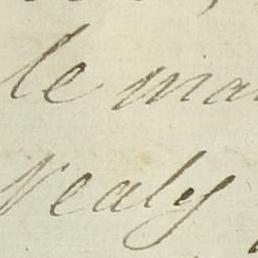 le mar
Nealy